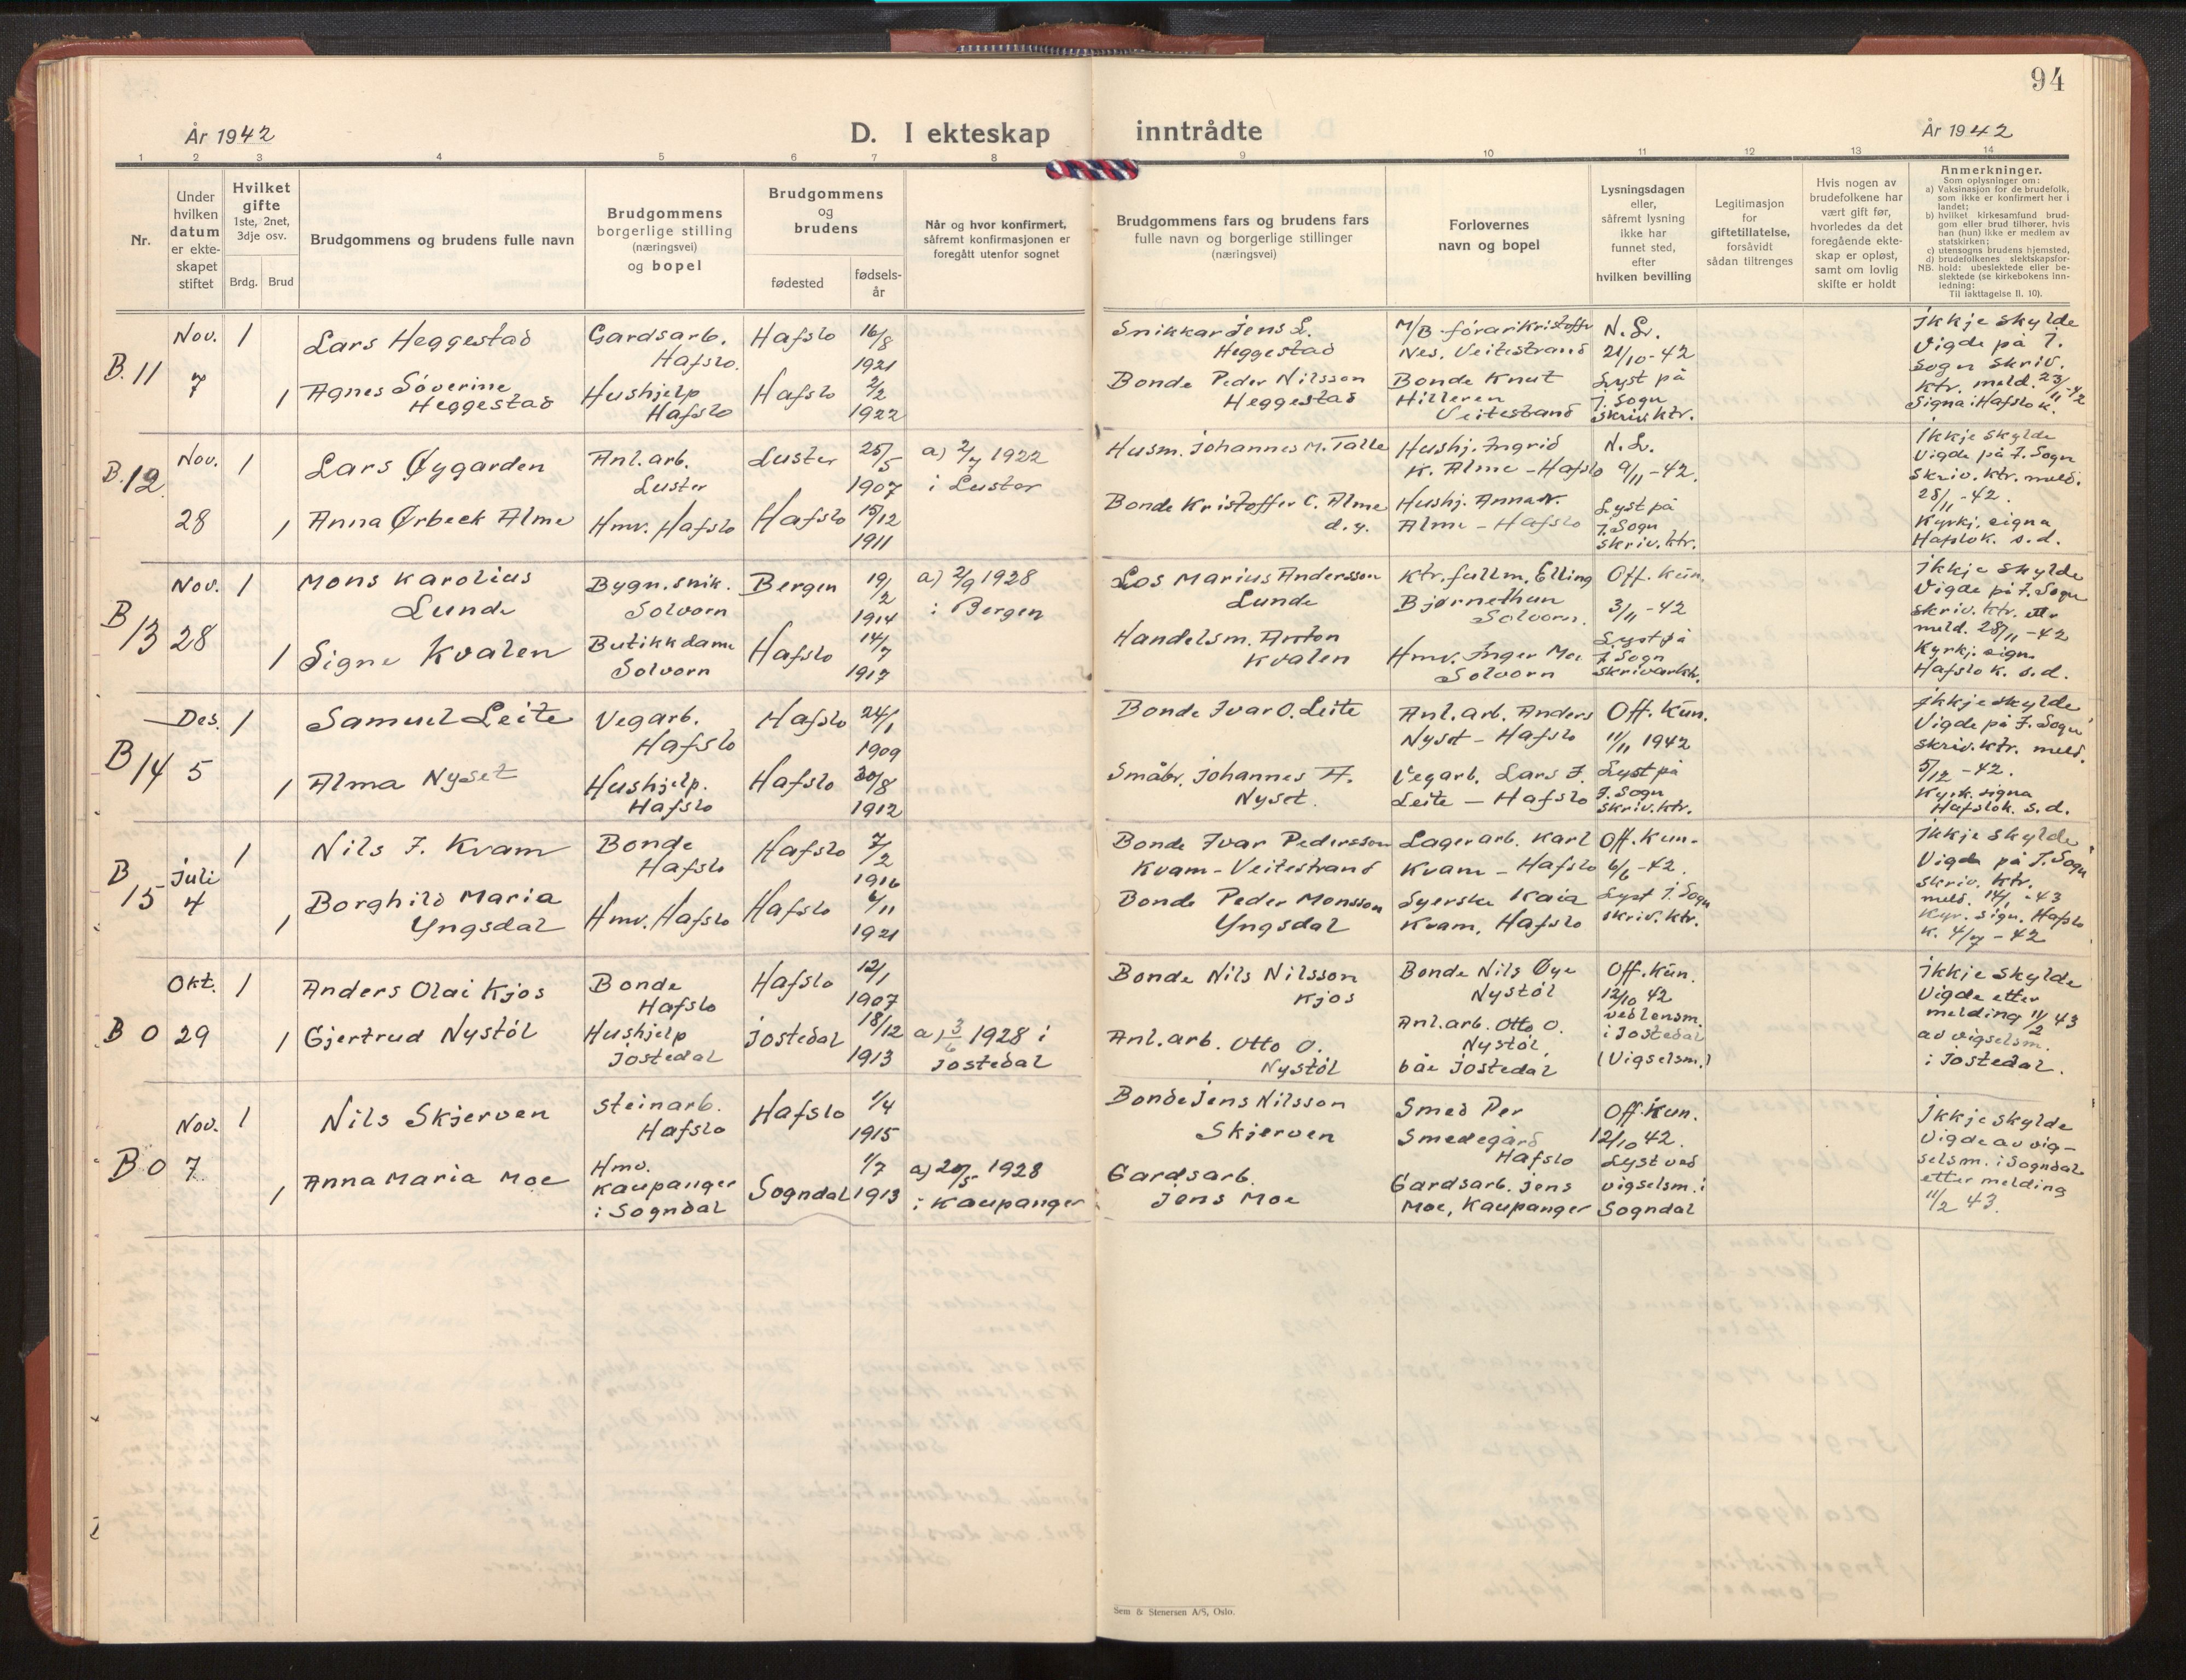 94
År 1942
D. I ekteskap inntrådte
År 1942
1 2 3 4 5 6 7 8 9 10 11 12 13 14
Nr.
Under hvilken datum er ekteskapet stiftet
Hvilket gifte
1ste, 2net, 3dje osv.
Brdg. Brud
Brudgommens og brudens fulle navn
Brudgommens borgerlige stilling (næringsvei) og bopel
Brudgommens og brudens
fødested
fødselsår
Når og hvor konfirmert, såfremt konfirmasjonen er foregått utenfor sognet
Brudgommens fars og brudens fars fulle navn og borgerlige stillinger (næringsvei)
Forlovernes navn og bopel
Lysningsdagen eller, såfremt lysning ikke har funnet sted, efter hvilken bevilling
Legitimasjon for giftetillatelse, forsåvidt sådan tiltrenges
Hvis nogen av brudefolkene har vært gift før, hvorledes da det foregående ekteskap er opløst, samt om lovlig skifte er holdt
Anmerkninger.
Som oplysninger om:
a) Vaksinasjon for de brudefolk, som ikke er konfirmert her i landet;
b) hvilket kirkesamfund brudgom eller brud tilhører, hvis han (hun) ikke er medlem av statskirken;
c) utensogns brudens hjemsted,
d) brudefolkenes slektskapsforhold: ubeslektede eller beslektede (se kirkebokens innledning:
NB.
Til iakttagelse II. 10).
B. 11
Nov. 7
1 Lars Heggestad
Gardsarb. Hafslo.
Hafslo
16/8 1921
Snikkar Jens L. Heggestad
M/B-förar Kristoffer Nes, Veitestrand
N. L. 21/10-42
Ikkje skylde
Vigde på I.
Sogn skriv.
ktr. meld. 23/11-42
Signa i Hafslo k.
1 Agnes Söverine Heggestad
Hushjelp Hafslo
Hafslo
2/2 1922
Bonde Peder Nilsson Heggestad
Bonde Knut Hilleren Veitestrand
Lyst på I. Sogn skriv. ktr.
B. 12
Nov. 28
1 Lars Øygarden
Anl. arb. Luster
Luster
25/5 1907
a) 2/7 1922 i Luster
Husm. Johannes M. Talle
Hushj. Ingrid K. Alme - Hafslo
N. L. 9/11-42.
Ikkje skylde
Vigde på I. Sogn
Skriv. ktr. meld.
28/11-42.
Kyrkj. signa
Hafslo k. s. d.
1 Anna Ørbeck Alme
Hmv. Hafslo
Hafslo
15/12 1911
Bonde Kristoffer C. Alme d. y.
Hushj. Anna N. Alme - Hafslo
Lyst på I. Sogn skriv. ktr.
B 13
Nov. 28
1 Mons Karolius Lunde
Bygn. snik. Solvorn
Bergen
19/2 1914
a) 2/9 1928 i Bergen
Los Marius Andersson Lunde
Ktr. fullm. Elling Bjørnethun Solvorn.
Off. Kun. 3/11-42
Ikkje skylde
Vigde på I. Sogn
skriv. ktr. ettr
meld. 28/11-42
Kyrkj. sign.
Hafslo k. s. d.
1 Signe Kvalen
Butikkdame Solvorn
Hafslo
14/7 1917
Handelsm. Anton Kvalen
Hmv. Inger Moe Solvorn
Lyst på I. Sogn skrivarktr.
B 14
Des. 5
1 Samuel Leite
Vegarb. Hafslo
Hafslo
24/1 1909
Bonde Ivar O. Leite
Anl. arb. Anders Nyset - Hafslo
Off. Kun. 11/11 1942
Ikkje skylde
Vigde på I. Sogn
skriv. ktr. meld.
5/12-42.
Kyrk. signa
Hafslo k. s. d.
1 Alma Nyset
Hushjelp. Hafslo
Hafslo
20/8 1912
Småbr. Johannes A. Nyset.
Vegarb. Lars I. Leite - Hafslo
Lyst på I. Sogn skriv. ktr.
B 15
Juli 4
1 Nils I. Kvam
Bonde Hafslo
Hafslo
7/2 1916
Bonde Ivar Pedersson Kvam - Veitestrand
Lagerarb. Karl Kvam - Hafslo
Off. Kun. 6/6-42.
Ikkje skylde
Vigde på I. Sogn
skriv. ktr.
meld. 14/1-43
Kyr. sign. Hafslo
k. 4/7-42
1 Borghild Maria Yngsdal
Hmv. Hafslo
Hafslo
6/11 1921
Bonde Peder Monsson Yngsdal
Syerske Kaia Kvam, Hafslo
Lyst I. Sogn skriv. ktr.
B 0
Okt. 29
1 Anders Olai Kjos
Bonde Hafslo
Hafslo
12/1 1907
Bonde Nils Nilsson Kjos
Bonde Nils Øye Nystöl
Off. Kun. 12/10 42 ved lensm. i Jostedal (Vigselsm.)
Ikkje skylde
Vigde etter
melding 11/2 43
av vigselsm.
i Jostedal.
1 Gjertrud Nystöl
Hushjelp Jostedal
Jostedal
18/12 1913
a) 3/6 1928 i Jostedal
Anl. arb. Otto O. Nystöl
Anl. arb. Otto O. Nystöl, båe Jostedal
B 0
Nov. 7
1 Nils Skjerven
Steinarb. Hafslo
Hafslo
1/4 1915
Bonde Jens Nilsson Skjerven
Smed Per Smedegård Hafslo
Off. Kun. 12/10 42.
Ikkje skylde
Vigde av vig-
selsm. i Sogndal
etter melding
11/2 43.
1 Anna Maria Moe
Hmv. Kaupanger i Sogndal
Sogndal
1/7 1913
a) 20/5 1928 i Kaupanger
Gardsarb. Jens Moe
Gardsarb. Jens Moe, Kaupanger
Lyst ved vigselsm. i Sogndal
Sem & Stenersen A/S, Oslo.